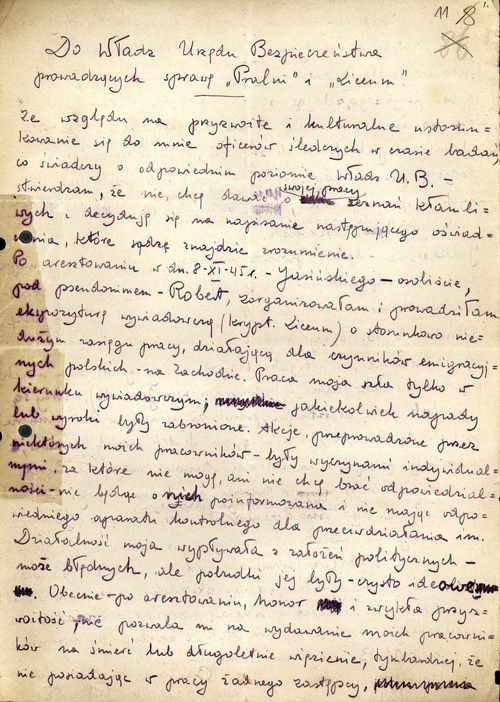 11 18
Do Władz Urzędu Bezpieczeństwa
prowadzących sprawę „Pralni" i „Liceum".
Ze względu na przyzwoite i kulturalne ustosun=
kowanie się do mnie oficerów śledczych w czasie badań,
co świadczy o odpowiednim poziomie władz U.B. –
stwierdzam, że nie chcę dawać o swojej pracy zeznań kłamli=
wych i decyduję się na napisanie następującego oświad=
czenia, które sądzę znajdzie zrozumienie.
Po aresztowaniu w dn. 8-XI-45 r. – Jasińskiego – osobiście,
pod pseudonimem – Robert, zorganizowałam i prowadziłam
ekspozyturę wywiadowczą (krypt. Liceum) o stosunkowo nie=
dużym zasięgu pracy, działającą dla czynników emigracyj=
nych polskich – na Zachodzie. Praca moja szła tylko w
kierunku wywiadowczym; jakiekolwiek nagrody
lub wyroki były zabronione. Akcje, przeprowadzone przez
niektórych moich pracowników – były wyczynami indywidual=
nymi, za które nie mogę, ani nie chcę brać odpowiedzial=
ności – nie będąc o nich poinformowana i nie mając odpo=
wiedniego aparatu kontrolnego dla przeciwdziałania im.
Działalność moja wypływała z założeń politycznych –
może błędnych, ale pobudki jej były – czysto ideowe
Obecnie – po aresztowaniu, honor i zwykła przyz=
woitość, nie pozwala mi na wydawanie moich pracowni=
ków na śmierć lub długoletnie więzienie, tymbardziej, że
nie posiadając w pracy żadnego zastępcy,